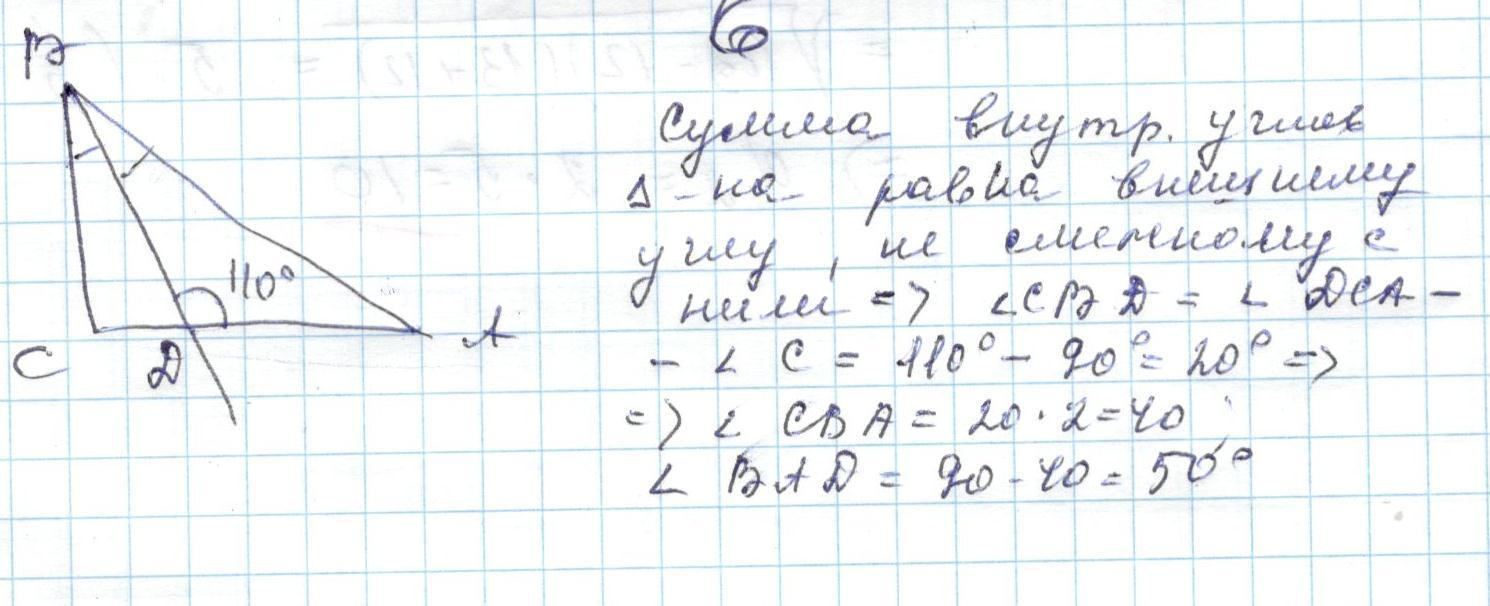 6
B
110°
C
D
A
Сумма внутр. углов
Δ-ка равна внешнему
углу, не смежному с
ними => ∠CBD = ∠ DCA -
- ∠ C = 110° - 90° = 20° =>
=> ∠ CBA = 20 · 2 = 40
∠ BAD = 90 - 40 = 50°